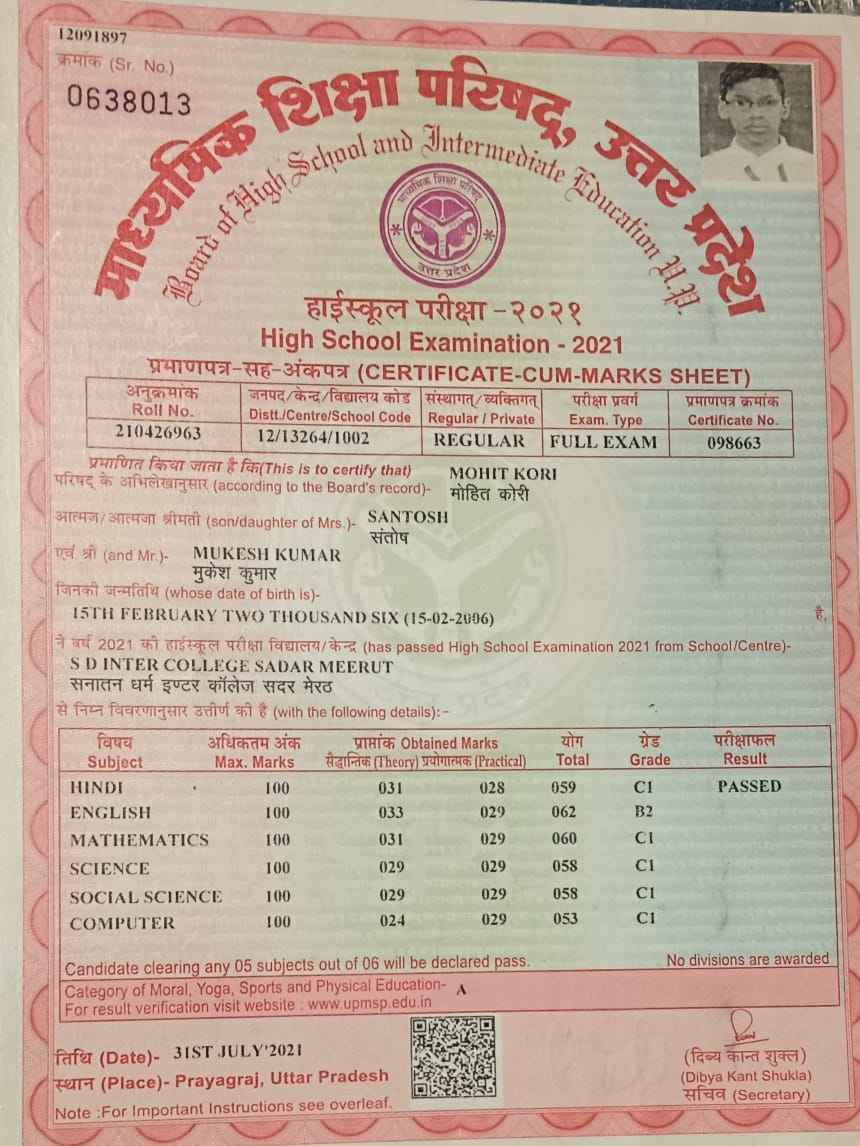 12091897
क्रमांक (Sr. No.)
0638013
माध्यमिक शिक्षा परिषद्, उत्तर प्रदेश
Board of High School and Intermediate Education U.P.
माध्यमिक शिक्षा परिषद्
उत्तर प्रदेश
हाईस्कूल परीक्षा - २०२१
High School Examination - 2021
प्रमाणपत्र-सह-अंकपत्र (CERTIFICATE-CUM-MARKS SHEET)
अनुक्रमांक जनपद/केन्द्र/विद्यालय कोड संस्थागत्/व्यक्तिगत् परीक्षा प्रवर्ग प्रमाणपत्र क्रमांक
Roll No. Distt./Centre/School Code Regular / Private Exam. Type Certificate No.
210426963 12/13264/1002 REGULAR FULL EXAM 098663
प्रमाणित किया जाता है कि(This is to certify that) MOHIT KORI
परिषद् के अभिलेखानुसार (according to the Board's record)- मोहित कोरी
आत्मज/आत्मजा श्रीमती (son/daughter of Mrs.)- SANTOSH
संतोष
एवं श्री (and Mr.)- MUKESH KUMAR
मुकेश कुमार
जिनकी जन्मतिथि (whose date of birth is)-
15TH FEBRUARY TWO THOUSAND SIX (15-02-2006) है,
ने वर्ष 2021 की हाईस्कूल परीक्षा विद्यालय/केन्द्र (has passed High School Examination 2021 from School/Centre)-
S D INTER COLLEGE SADAR MEERUT
सनातन धर्म इण्टर कॉलेज सदर मेरठ
से निम्न विवरणानुसार उत्तीर्ण की है (with the following details):-
विषय अधिकतम अंक प्राप्तांक Obtained Marks योग ग्रेड परीक्षाफल
Subject Max. Marks सैद्धान्तिक (Theory) प्रयोगात्मक (Practical) Total Grade Result
HINDI 100 031 028 059 C1 PASSED
ENGLISH 100 033 029 062 B2
MATHEMATICS 100 031 029 060 C1
SCIENCE 100 029 029 058 C1
SOCIAL SCIENCE 100 029 029 058 C1
COMPUTER 100 024 029 053 C1
Candidate clearing any 05 subjects out of 06 will be declared pass. No divisions are awarded
Category of Moral, Yoga, Sports and Physical Education- A
For result verification visit website : www.upmsp.edu.in
तिथि (Date)- 31ST JULY'2021
स्थान (Place)- Prayagraj, Uttar Pradesh
Note :For Important Instructions see overleaf.
(दिब्य कान्त शुक्ल)
(Dibya Kant Shukla)
सचिव (Secretary)